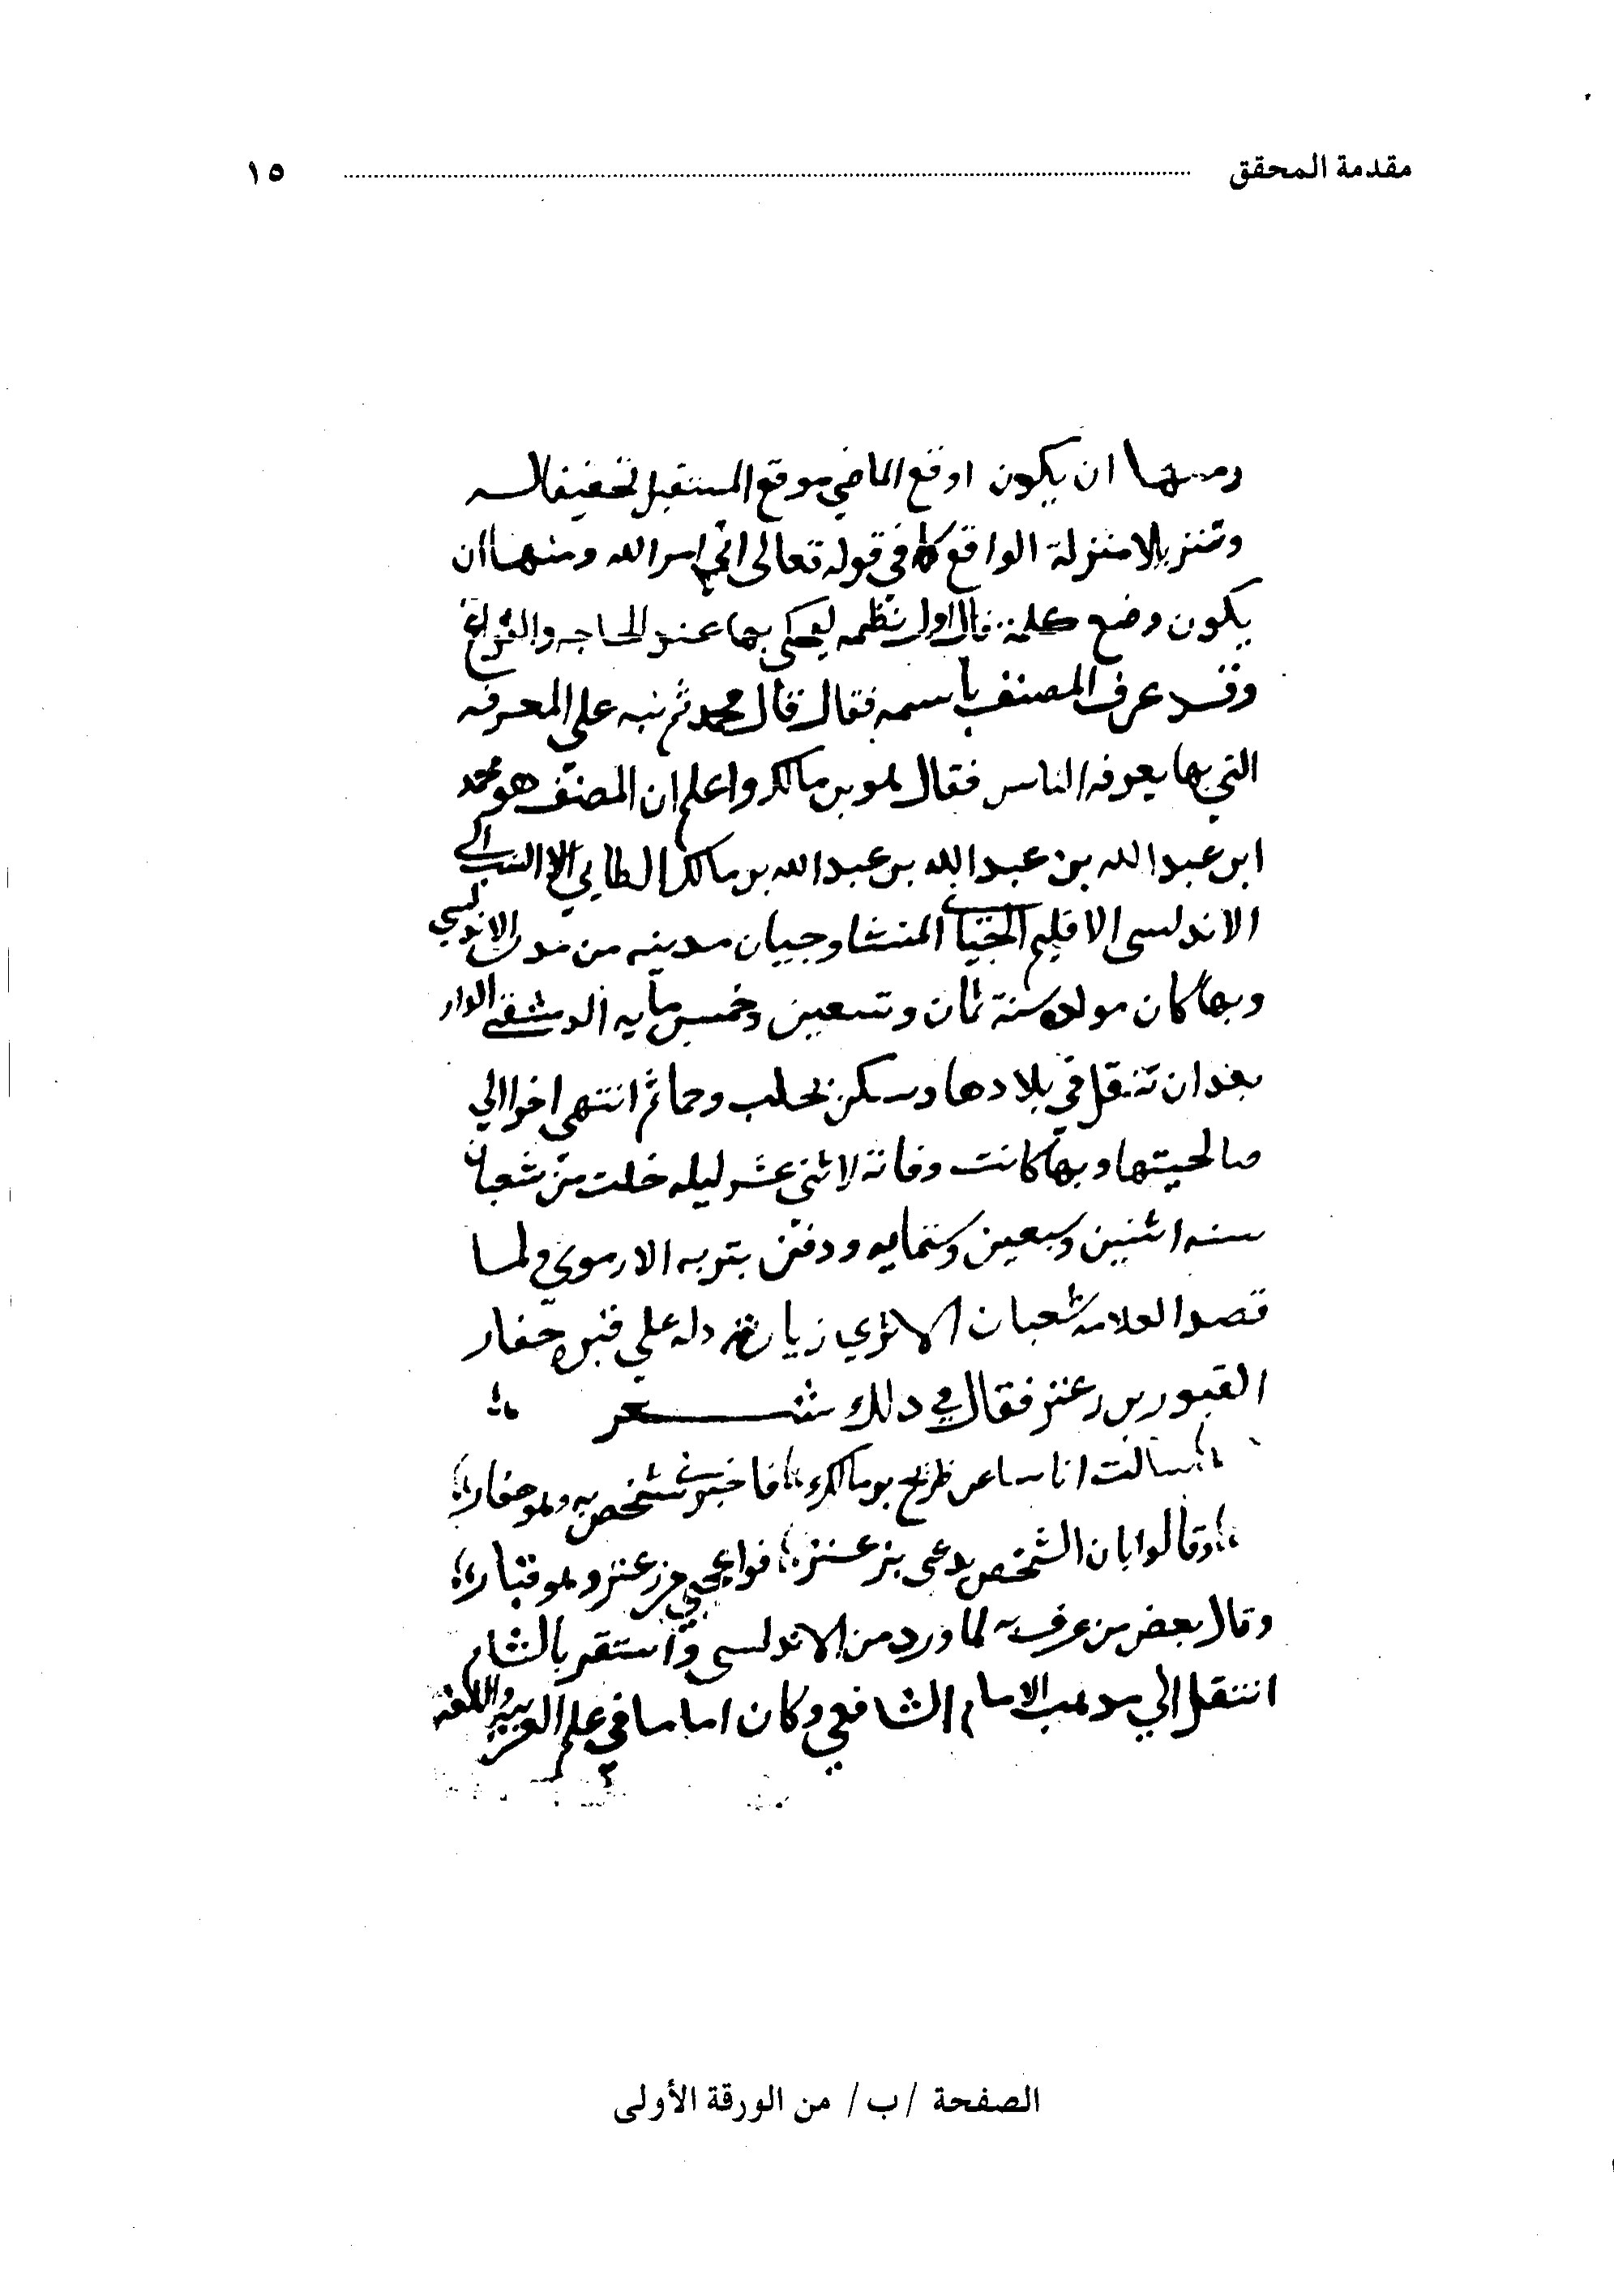 مقدمة المحقق ........ ١٥
ومنها ان يكون اوقع الماضي موقع المستقبل تحقيقا له
وتنزيلا منزلة الواقع كما في قوله تعالى اتي امر الله ومنها ان
يكون وضع كلمة قال اول نظمه ليحكى بها عند الحاجه والفراغ
وقد عرف المصنف باسمه فقال قال محمد ثم نبه علي المعرفه
التي بها يعرفه الناس فقال هو بن مالك واعلم ان المصنف هو محمد
ابن عبد الله بن عبد الله بن عبد الله بن مالك الطايي النسب
الاندلسي الاقليم الجياني المنشا وجيان مدينه من مدن الاندلس
وبها كان مولده سنة ثمان وتسعين وخمس مايه الدمشقي الدار
بعد ان تنقل في بلادها وسكن بحلب وحماه ثم انتهى اخرا الي
صالحيتها وبها كانت وفاته لاثني عشر ليله خلت من شعبان
سنه اثنين وسبعين وستمايه ودفن بتربه الارموي ولما
قصد العلامه شعبان الاثري زيارته دله علي قبره حفار
القبور بن رعنز فقال في دلك شعر
سالت اناسا عن ظريح بن مالك فاخبرني شخص به وهو حفار
وقالوا بان الشخص يدعى بن عنز فواعجبي من عنز وهو قبار
وقال بعض من عرف به لما ورد من الاندلسي واستقر بالشام
انتقل الي مدهب الامام الشافعي وكان اماما في علم العربيه واللغه
الصفحة /ب/ من الورقة الأولى